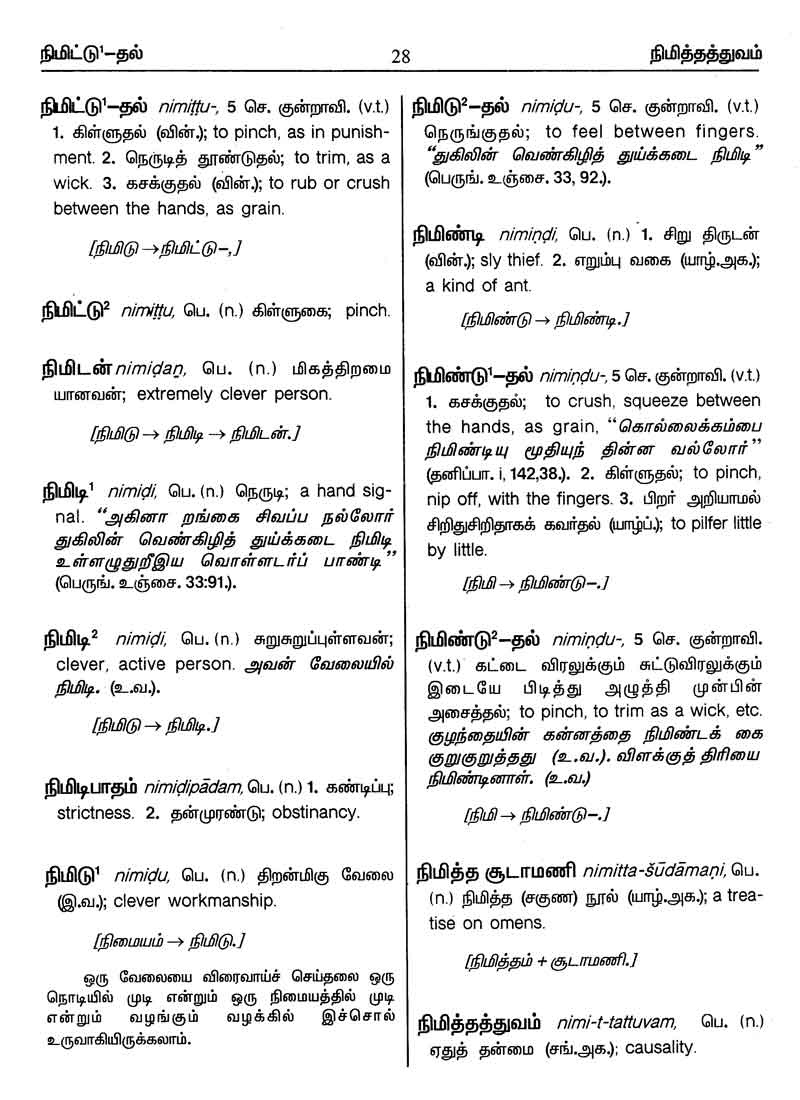 நிமிட்டு¹-தல்
28
நிமித்தத்துவம்
நிமிட்டு¹-தல் nimiṭṭu-, 5 செ. குன்றாவி. (v.t.)
1. கிள்ளுதல் (வின்.); to pinch, as in punish-
ment. 2. நெருடித் தூண்டுதல்; to trim, as a
wick. 3. கசக்குதல் (வின்.); to rub or crush
between the hands, as grain.
[நிமிடு → நிமிட்டு-,]
நிமிட்டு² nimiṭṭu, பெ. (n.) கிள்ளுகை; pinch.
நிமிடன் nimiḍaṉ, பெ. (n.) மிகத்திறமை
யானவன்; extremely clever person.
[நிமிடு → நிமிடி → நிமிடன்.]
நிமிடி¹ nimiḍi, பெ. (n.) நெருடி; a hand sig-
nal. “அகினா றங்கை சிவப்ப நல்லோர்
துகிலின் வெண்கிழித் துய்க்கடை நிமிடி
உள்ளழுதுறீஇய வொள்ளடர்ப் பாண்டி”
(பெருங். உஞ்சை. 33:91.).
நிமிடி² nimiḍi, பெ. (n.) சுறுசுறுப்புள்ளவன்;
clever, active person. அவன் வேலையில்
நிமிடி. (உ.வ.).
[நிமிடு → நிமிடி.]
நிமிடிபாதம் nimiḍipādam, பெ. (n.) 1. கண்டிப்பு;
strictness. 2. தன்முரண்டு; obstinancy.
நிமிடு¹ nimiḍu, பெ. (n.) திறன்மிகு வேலை
(இ.வ.); clever workmanship.
[நிமையம் → நிமிடு.]
ஒரு வேலையை விரைவாய்ச் செய்தலை ஒரு
நொடியில் முடி என்றும் ஒரு நிமையத்தில் முடி
என்றும் வழங்கும் வழக்கில் இச்சொல்
உருவாகியிருக்கலாம்.
நிமிடு²-தல் nimiḍu-, 5 செ. குன்றாவி. (v.t.)
நெருங்குதல்; to feel between fingers.
“துகிலின் வெண்கிழித் துய்க்கடை நிமிடி”
(பெருங். உஞ்சை. 33, 92.).
நிமிண்டி nimiṇḍi, பெ. (n.) 1. சிறு திருடன்
(வின்.); sly thief. 2. எறும்பு வகை (யாழ்.அக.);
a kind of ant.
[நிமிண்டு → நிமிண்டி.]
நிமிண்டு¹-தல் nimiṇḍu-, 5 செ. குன்றாவி. (v.t.)
1. கசக்குதல்; to crush, squeeze between
the hands, as grain, “கொல்லைக்கம்பை
நிமிண்டியு மூதியுந் தின்ன வல்லோர்”
(தனிப்பா. i, 142,38.). 2. கிள்ளுதல்; to pinch,
nip off, with the fingers. 3. பிறர் அறியாமல்
சிறிதுசிறிதாகக் கவர்தல் (யாழ்ப்.); to pilfer little
by little.
[நிமி → நிமிண்டு-.]
நிமிண்டு²-தல் nimiṇḍu-, 5 செ. குன்றாவி.
(v.t.) கட்டை விரலுக்கும் சுட்டுவிரலுக்கும்
இடையே பிடித்து அழுத்தி முன்பின்
அசைத்தல்; to pinch, to trim as a wick, etc.
குழந்தையின் கன்னத்தை நிமிண்டக் கை
குறுகுறுத்தது (உ.வ.). விளக்குத் திரியை
நிமிண்டினாள். (உ.வ.)
[நிமி → நிமிண்டு-.]
நிமித்த சூடாமணி nimitta-šūdāmaṇi, பெ.
(n.) நிமித்த (சகுண) நூல் (யாழ்.அக.); a trea-
tise on omens.
[நிமித்தம் + சூடாமணி.]
நிமித்தத்துவம் nimi-t-tattuvam, பெ. (n.)
ஏதுத் தன்மை (சங்.அக.); causality.